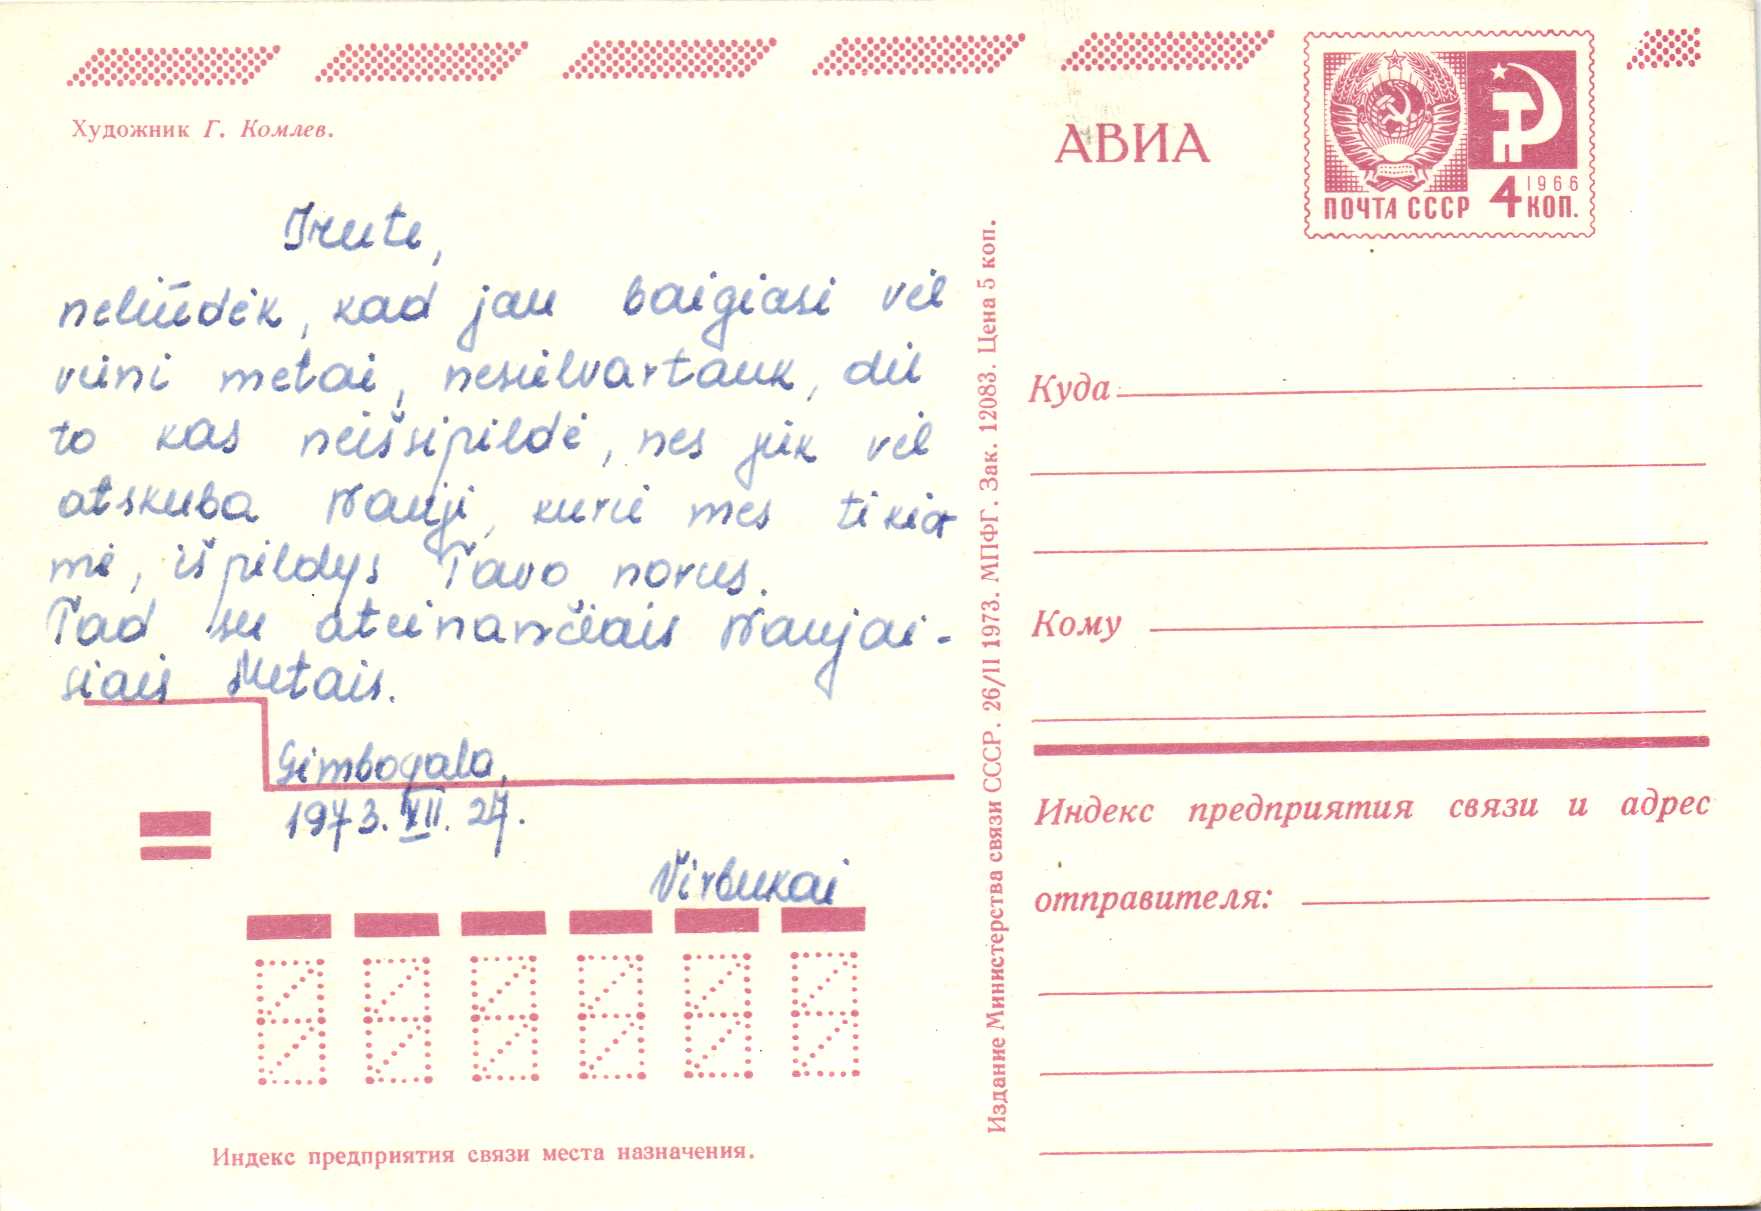 Художник Г. Комлев.
АВИА
1966
ПОЧТА СССР 4 КОП.
Irute,
neliūdėk, kad jau baigiasi vėl
vieni metai, nesielvartauk, dėl
to kas neišsipildė, nes juk vėl
atskuba Nauji, kurie mes tikia
me, išpildys Tavo norus.
Tad su ateinančiais Naujai-
siais Metais.
Gimbogala,
1973.XII.27.
Virbukai
Индекс предприятия связи места назначения.
Издание Министерства связи СССР. 26/II 1973. МПФГ. Зак. 12083. Цена 5 коп.
Куда
Кому
Индекс предприятия связи и адрес
отправителя: